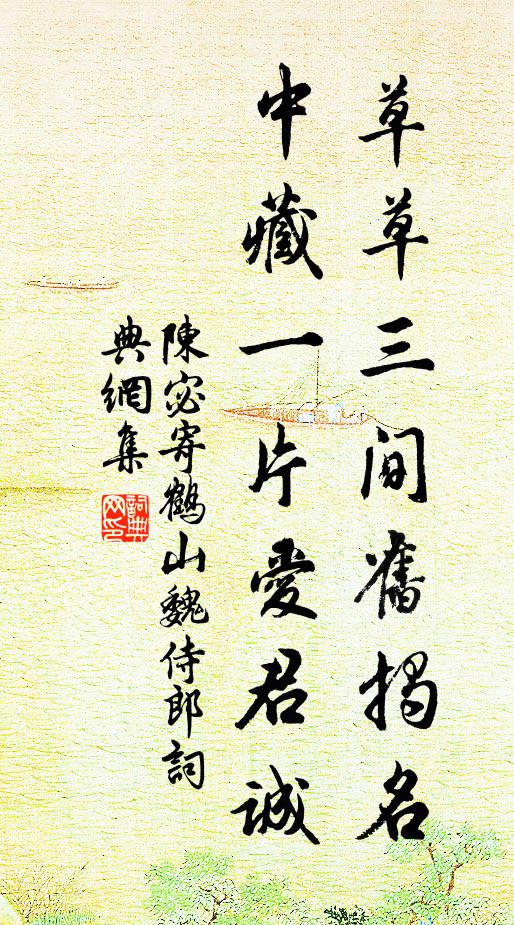 草草三間舊揭名
中藏一片愛君誠
陳宓寄鶴山魏侍郎詞
典網集
詞典
网印